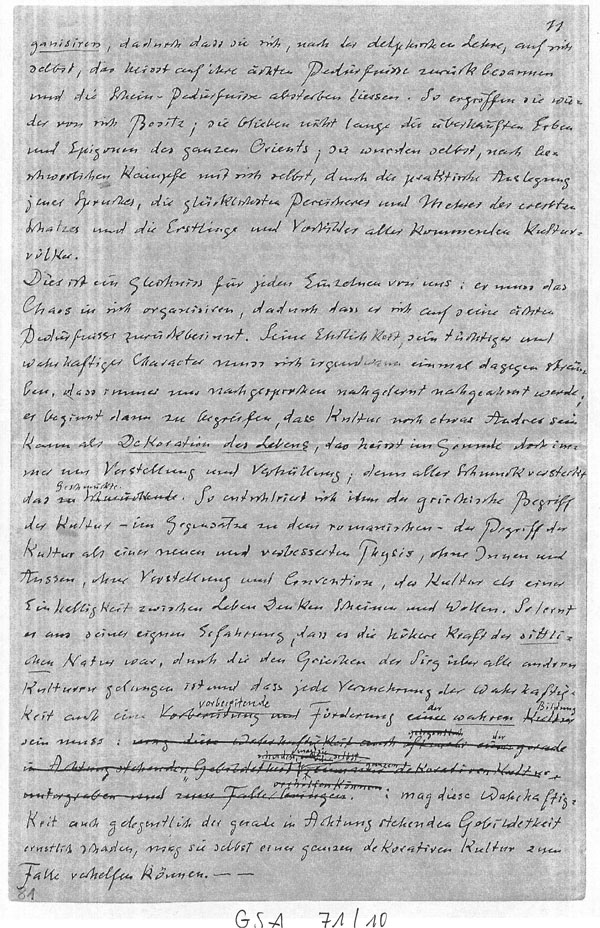 71
ganisiren, dadurch dass sie sich, nach der delphischen Lehre, auf sich
selbst, das heisst auf ihre ächten Bedürfnisse zurück besannen
und die Schein-Bedürfnisse absterben liessen. So ergriffen sie wie-
der von sich Besitz; sie blieben nicht lange die überhäuften Erben
und Epigonen des ganzen Orients; sie wurden selbst, nach be-
schwerlichem Kampfe mit sich selbst, durch die praktische Auslegung
jenes Spruches, die glücklichsten Bereicherer und Mehrer des ererbten
Schatzes und die Erstlinge und Vorbilder aller kommenden Kultur-
völker.
Dies ist ein Gleichniss für jeden Einzelnen von uns: er muss das
Chaos in sich organisiren, dadurch dass er sich auf seine ächten
Bedürfnisse zurückbesinnt. Seine Ehrlichkeit, sein tüchtiger und
wahrhaftiger Character muss sich irgendwann einmal dagegen sträu-
ben, dass immer nur nachgesprochen nachgelernt nachgeahmt werde;
er beginnt dann zu begreifen, dass Kultur noch etwas Andres sein
kann als Dekoration des Lebens, das heisst im Grunde doch im-
mer nur Verstellung und Verhüllung; denn aller Schmuck versteckt
Geschmückte.
das zu Schmückende. So entschleiert sich ihm der griechische Begriff
der Kultur – im Gegensatze zu dem romanischen – der Begriff der
Kultur als einer neuen und verbesserten Physis, ohne Innen und
Aussen, ohne Verstellung und Convention, der Kultur als einer
Einhelligkeit zwischen Leben Denken Scheinen und Wollen. So lernt
er aus seiner eignen Erfahrung, dass es die höhere Kraft der sittli-
chen Natur war, durch die den Griechen der Sieg über alle anderen
Kulturen gelungen ist und dass jede Vermehrung der Wahrhaftig-
vorbereitende der Bildung
keit auch eine Vorbereitung und Förderung einer wahren Kultur
gelegentlich der
sein muss: mag diese Wahrhaftigkeit auch einer gerade
in Achtung stehenden Gebildetheit ganzen dekorativen Kultur
verhelfen können
untergraben und zum Falle bringen. : mag diese Wahrhaftig-
keit auch gelegentlich der gerade in Achtung stehenden Gebildetheit
ernstlich schaden, mag sie selbst einer ganzen dekorativen Kultur zum
Falle verhelfen können. — —
81
GSA 71/10